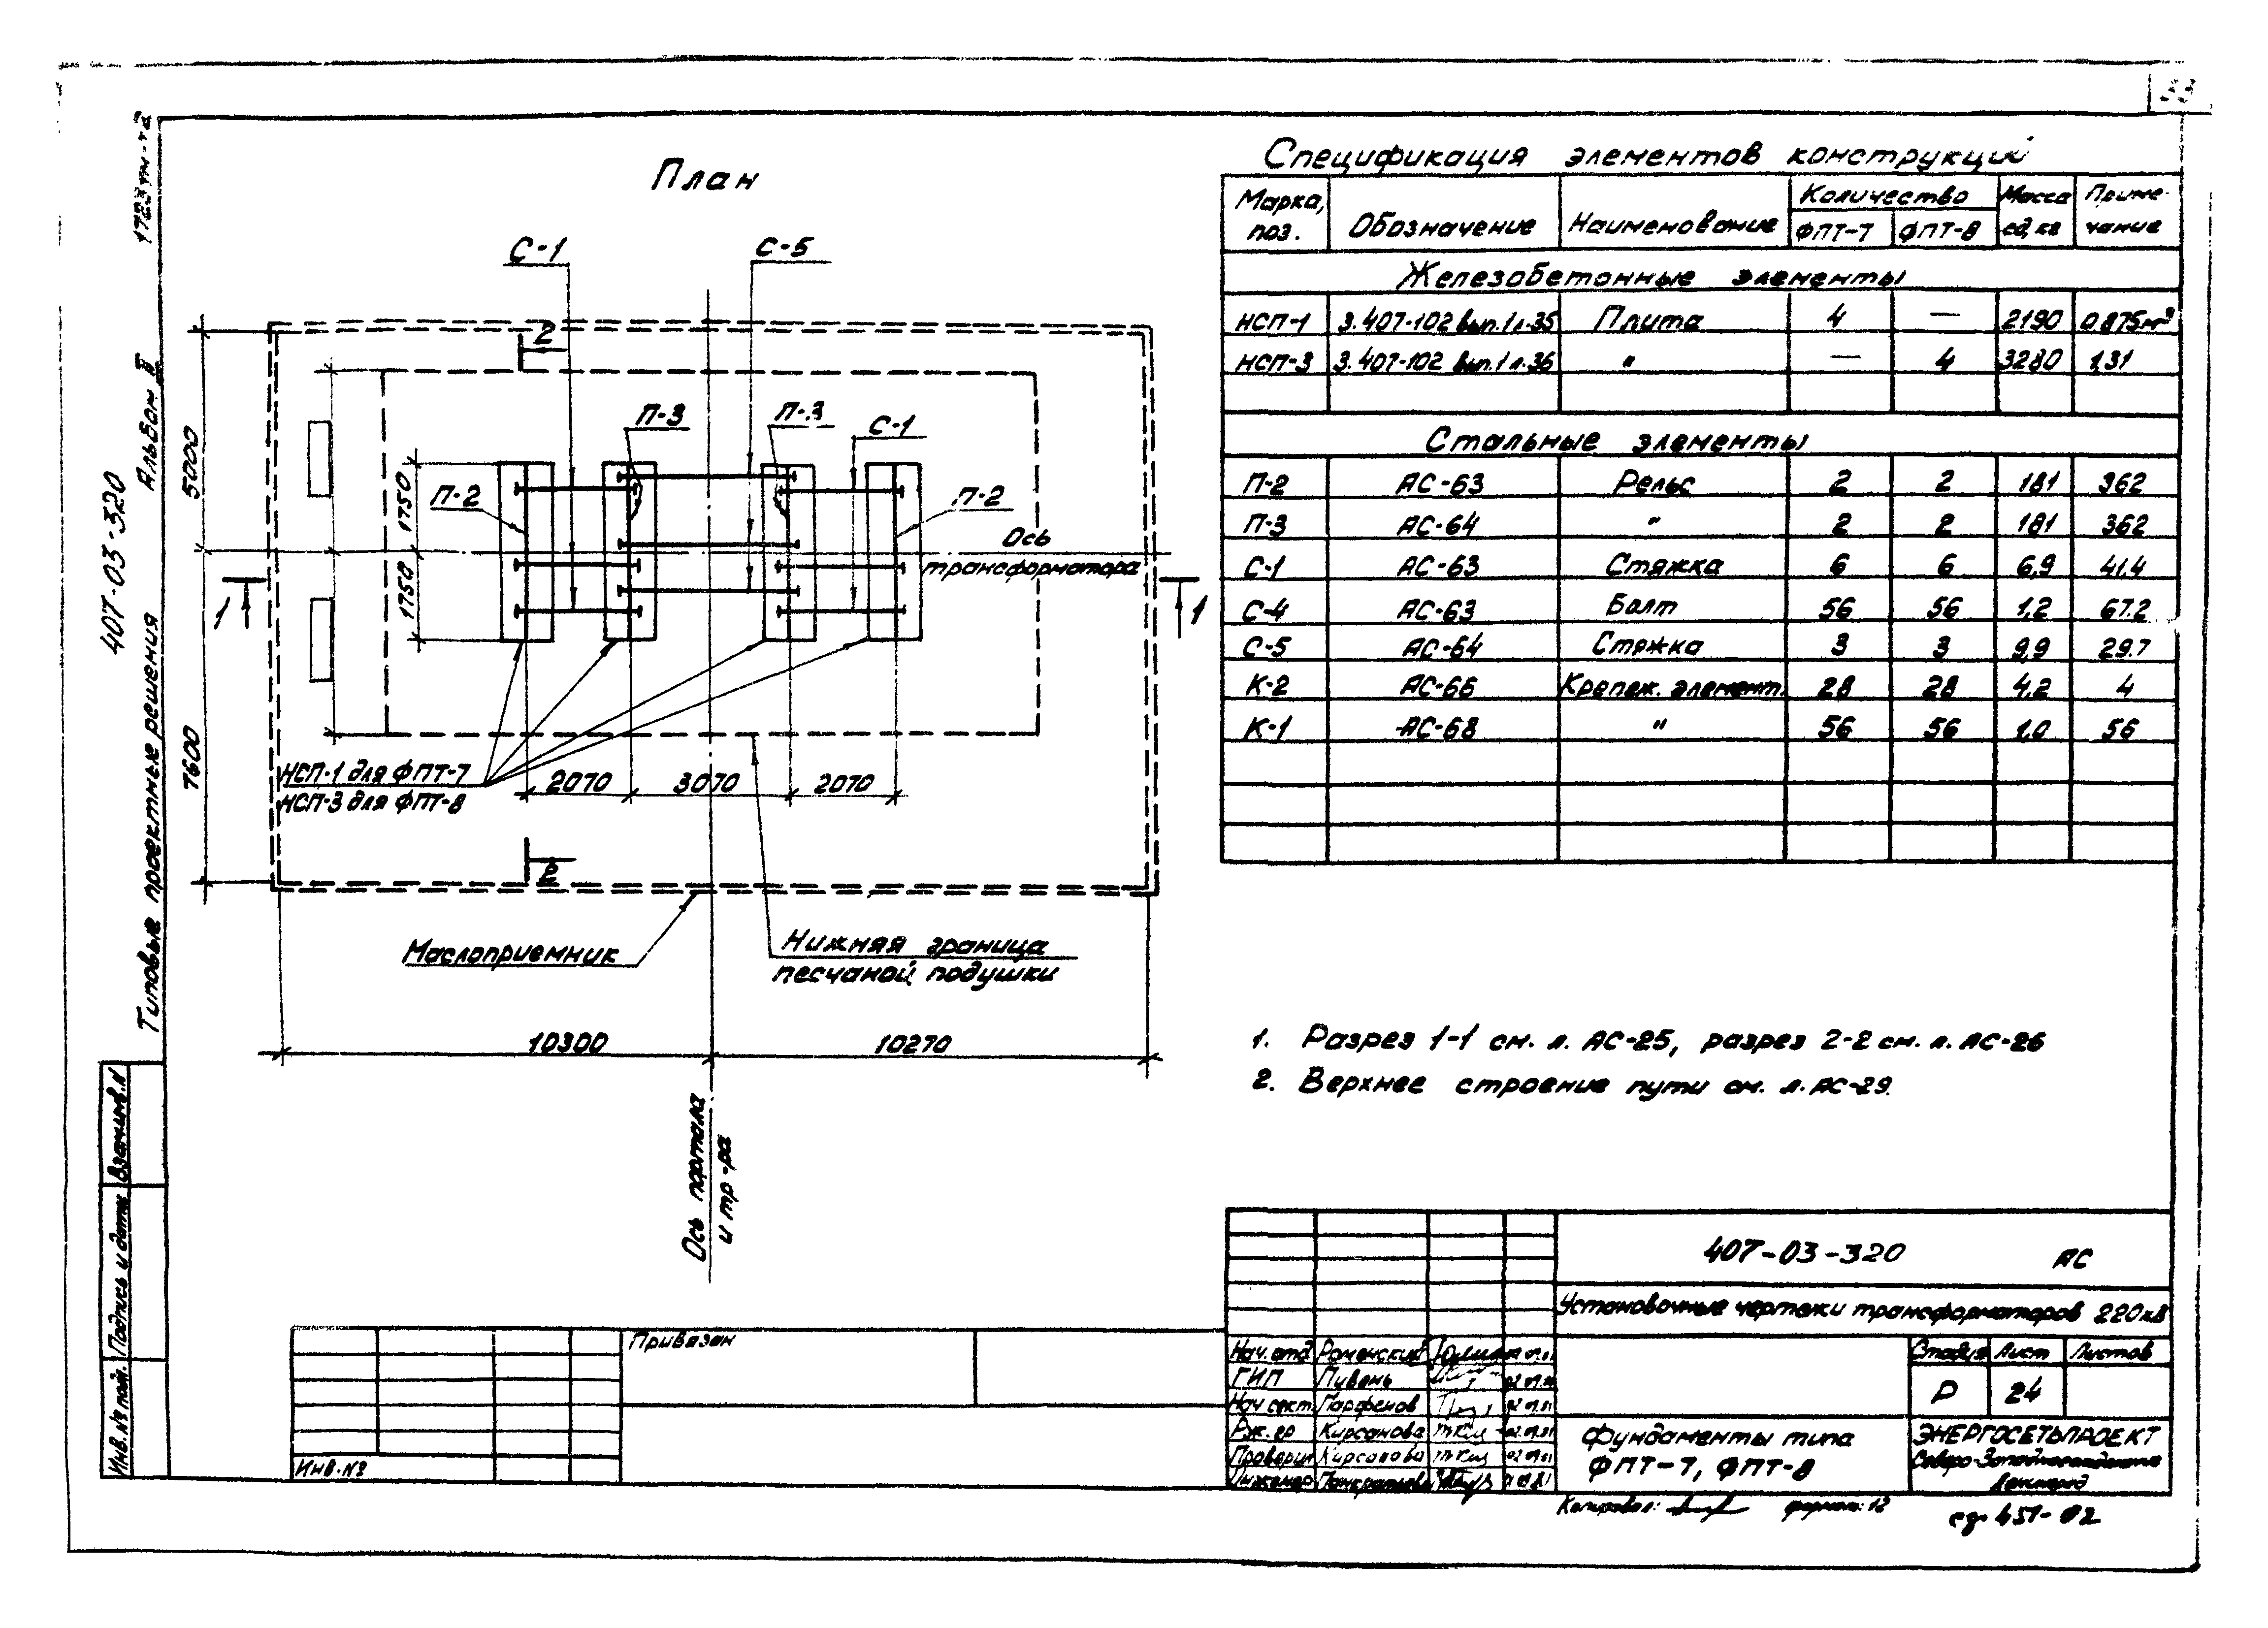 33
1723тм-т2
Альбом II
407-03-320
Типовые проектные решения
План
С-1
С-5
2
П-3
П-3
С-1
П-2
П-2
5000
1750
1750
Ось
трансформатора
1
1
7600
НСП-1 для ФПТ-7
НСП-3 для ФПТ-8
2070
3070
2070
2
Маслоприемник
Нижняя граница
песчаной подушки
10300
10270
Ось портала
и тр-ра
Спецификация элементов конструкций
Марка, поз. Обозначение Наименование Количество Масса ед, кг Приме-чание
ФПТ-7 ФПТ-8
Железобетонные элементы
НСП-1 3.407-102 вып.1 л.35 Плита 4 — 2190 0,875м³
НСП-3 3.407-102 вып.1 л.36 " — 4 3280 1,31
Стальные элементы
П-2 АС-63 Рельс 2 2 181 362
П-3 АС-64 " 2 2 181 362
С-1 АС-63 Стяжка 6 6 6,9 41.4
С-4 АС-63 Болт 56 56 1,2 67.2
С-5 АС-64 Стяжка 3 3 9,9 29.7
К-2 АС-66 Крепеж. элемент. 28 28 4,2 4
К-1 АС-68 " 56 56 1,0 56
1. Разрез 1-1 см. л. АС-25, разрез 2-2 см. л. АС-26
2. Верхнее строение пути см. л. АС-29.
Взам.инв.N
Подпись и дата
Инв.№ подл.
Привязан
Инв.№
407-03-320 АС
Установочные чертежи трансформаторов 220кВ
Нач.отд Роменский
ГИП Пувень
Нач сект. Парфенов
Рук.гр Кирсанова
Проверил Кирсанова
Инженер
Стадия Лист Листов
Р 24
Фундаменты типа
ФПТ-7, ФПТ-8
ЭНЕРГОСЕТЬПРОЕКТ
Северо-Западное отделение
Ленинград
Копировал: формат: 12